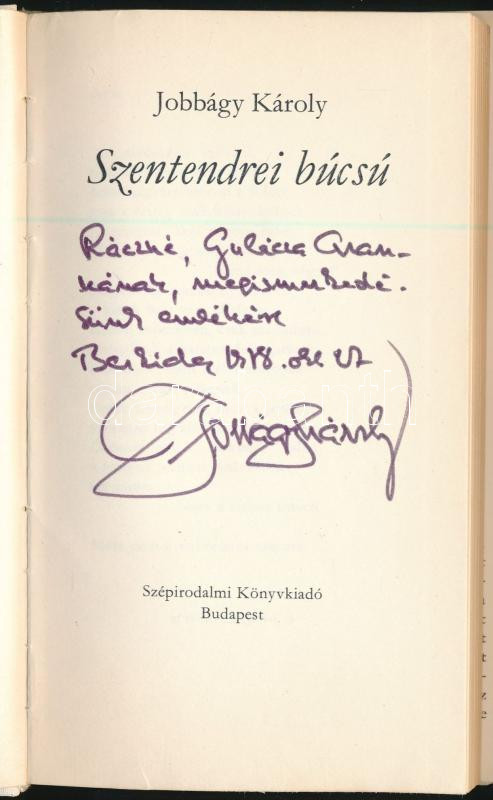 Jobbágy Károly
Szentendrei búcsú
Ráczné, Gulácsa Aran-
kának, megismerkedé-
sünk emlékére
1978. okt. 27
Jobbágy Károly
Szépirodalmi Könyvkiadó
Budapest